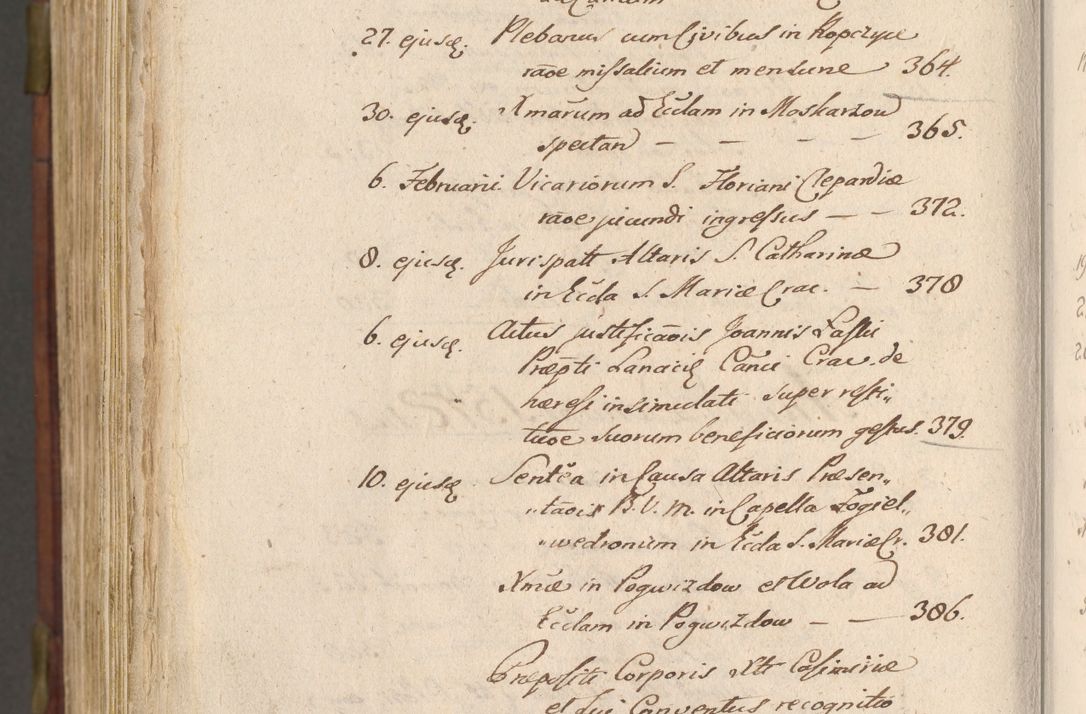 27. ejusq. Plebanus cum Civibus in Kopczyce
rãoe missalium et mensurne 364.
30. ejusq. Xmarum ad Eccłam in Moskarzow
spectan̄ — — — — 365.
6. Februarii. Vicariorum S. Floriani Clepardiæ
rãoe jucundi ingressus — — 372.
8. ejusq. Jurispatt Altaris S. Catharinæ
in Eccła S. Mariæ Crac. — 378
6. ejusq. Actus justificãois Joannis Laski
Præpti Lanacię Canci Crac. de
hæresi insimulati super resti„
tuõe suorum beneficiorum gestus. 379.
10. ejusq. Sentẽa in Causa Altaris Præsen„
„tãois B. V. M. in Capella Zogiel„
„wedronium in Eccła S. Mariæ Cr. 381.
Xmæ in Pogwizdow et Wola ad
Eccłam in Pogwizdow — — 386.
Præpositi Corporis Xti Casimiriæ
et sui Conventus recognitio